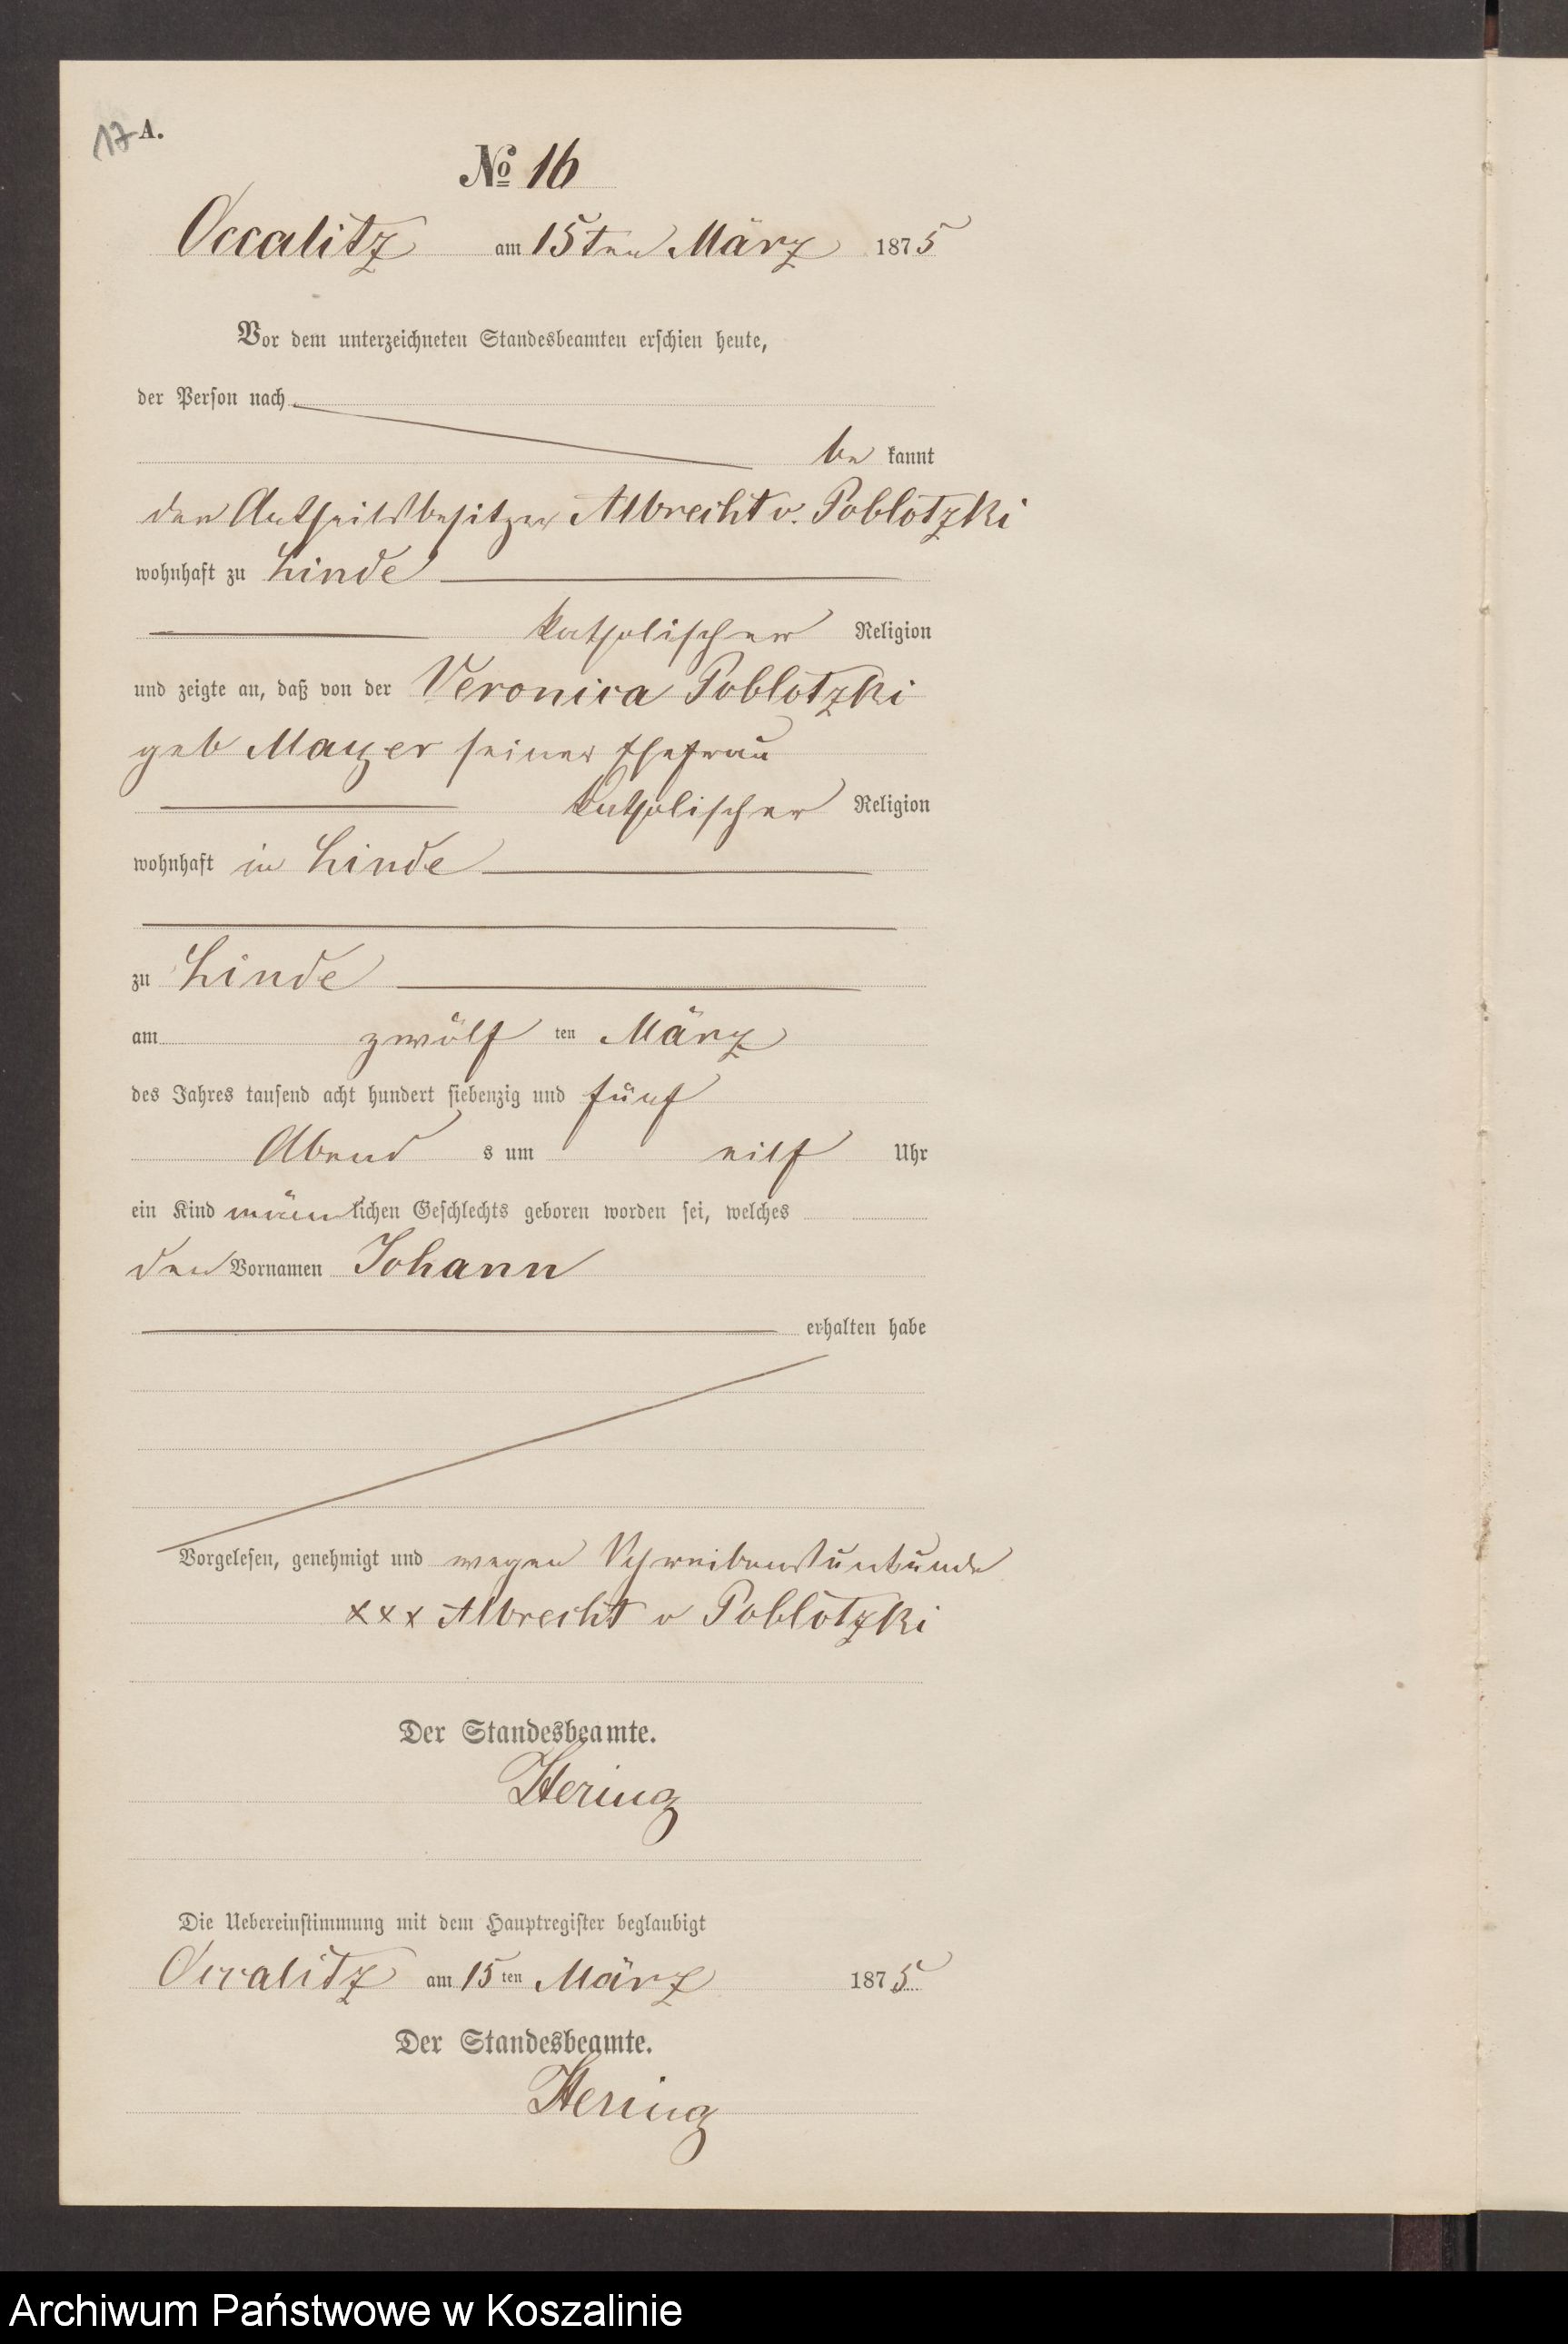 17 A.
No 16
Occalitz am 15ten März 1875
Vor dem unterzeichneten Standesbeamten erschien heute,
der Person nach
be kannt
der Antheilsbesitzer Albrecht v. Poblotzki
wohnhaft zu Linde
katholischer Religion
und zeigte an, daß von der Veronica Poblotzki
geb Mayer seiner Ehefrau
katholischer Religion
wohnhaft in Linde
zu Linde
am zwölf ten März
des Jahres tausend acht hundert siebenzig und fünf
Abend s um eilf Uhr
ein Kind männlichen Geschlechts geboren worden sei, welches
den Vornamen Johann
erhalten habe
Vorgelesen, genehmigt und wegen Schreibensunkunde
xxx Albrecht v Poblotzki
Der Standesbeamte.
Hering
Die Uebereinstimmung mit dem Hauptregister beglaubigt
Occalitz am 15 ten März 1875
Der Standesbeamte.
Hering
Archiwum Państwowe w Koszalinie